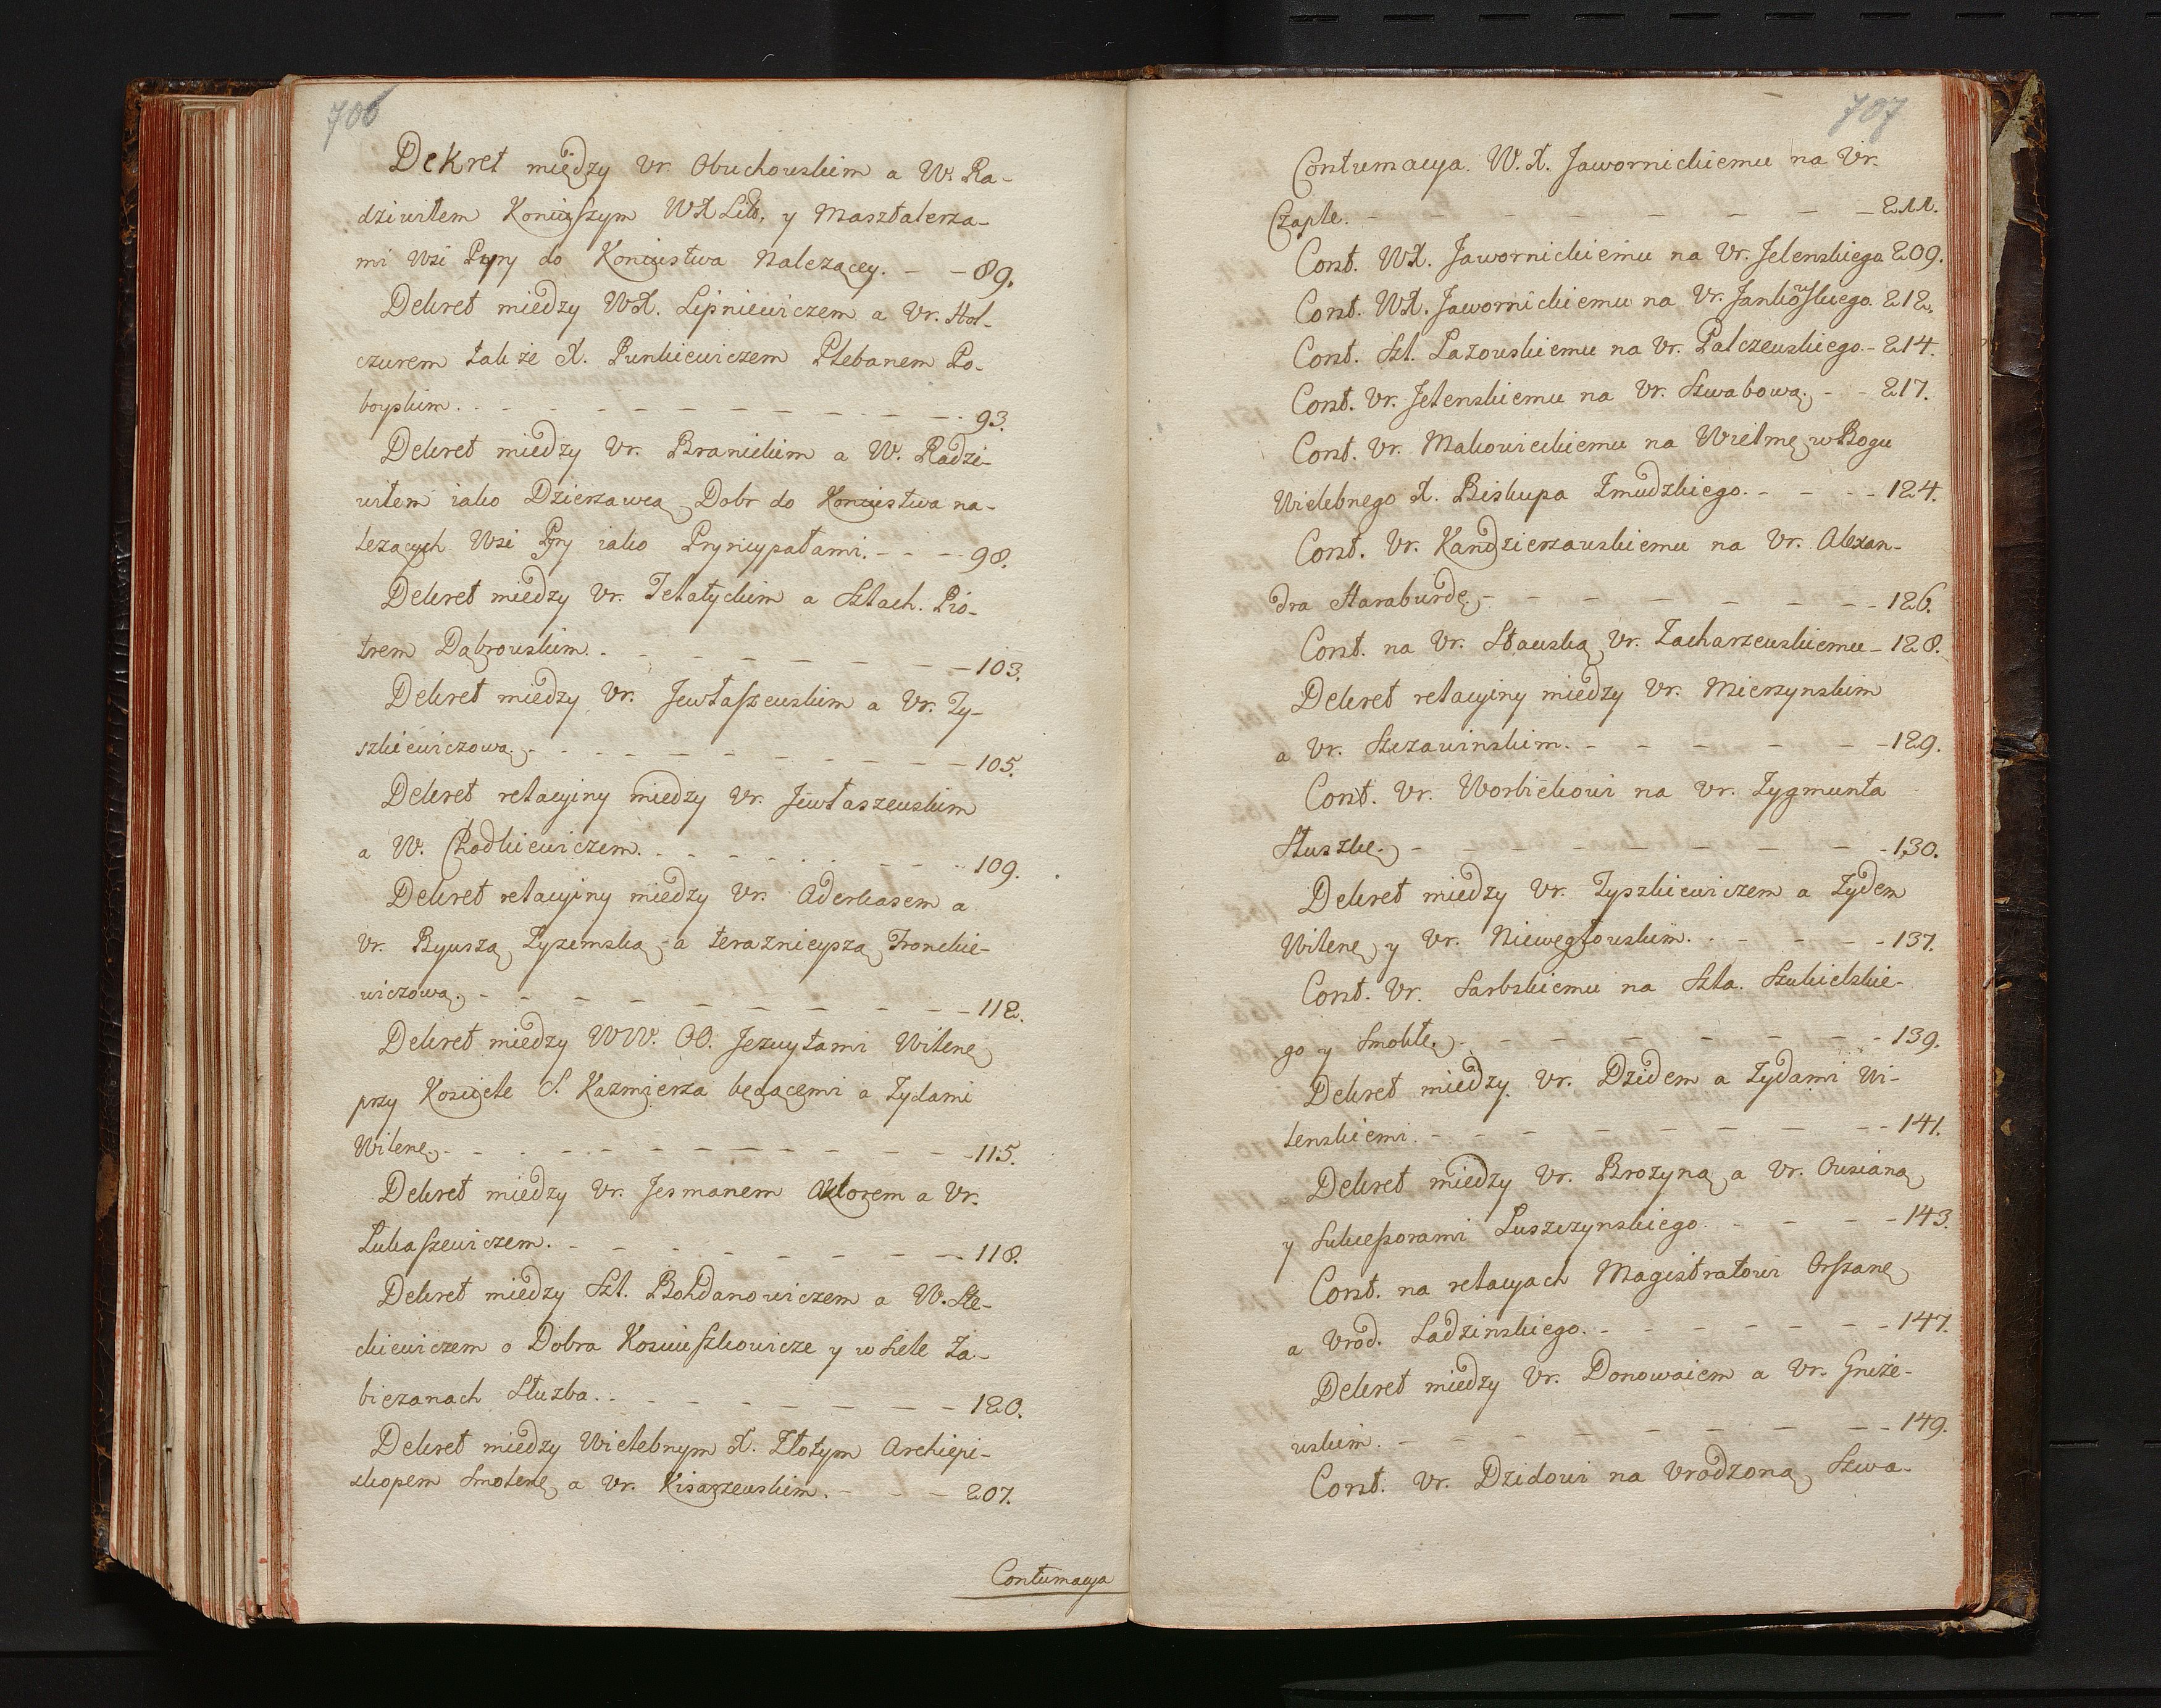 706
Dekret między Vr. Obuchouskim a W. Ra-
dziwiłem Koniuszym WXLitt. y Masztalerza-
mi Wsi Pyry do Koniustwa Nalezącey. - - 89.
Dekret miedzy WX. Lipniewiczem a Vr. Hol-
czurem także X. Punkiewiczem Plebanem Po-
boyskim. - - - - - - - - - 93.
Dekret miedzy Vr. Branickim a W. Radzi-
wiłem iako Dzierzawcą Dobr do Koniustwa na-
lezących Wsi Pyry iako Pryncypałami. - - - 98.
Dekret miedzy Vr. Telatyckim a Szlach. Pio-
trem Dąbrouskim. - - - - - - - - 103.
Dekret miedzy Vr. Jewłaszeuskim a Vr. Ty-
szkiewiczową. - - - - - - - - 105.
Dekret relacyiny miedzy Vr. Jewłaszeuskim
a W. Chodkiewiczem. - - - - - - - 109.
Dekret relacyiny miedzy Vr. Aderkasem a
Vr. Ryuszą Zyzemską a teraznieyszą Fronckie-
wiczową. - - - - - - - - - 112.
Dekret miedzy WW. OO. Jezuytami Wilenę
przy Kosciele S. Kazmierza będącemi a Zydami
Wilenę. - - - - - - - - - 115.
Dekret miedzy Vr. Jesmanem Aktorem a Vr.
Łukaszewiczem. - - - - - - - - 118.
Dekret miedzy Szl. Bohdanowiczem a W. Ste-
ckiewiczem o Dobra Kosciuszkowicze y w Siele Za-
biczanach Służba. - - - - - - - 120.
Dekret miedzy Wielebnym X. Złotym Archiepi-
skopem Smolenę a Vr. Kisarzeuskim. - - - 207.
Contumacya
707
Contumacya. W.X. Jawornickiemu na Vr.
Czaple. - - - - - - - - 211.
Const. WX. Jawornickiemu na Vr. Jelenskiego 209.
Const. WX. Jawornickiemu na Vr. Jankowskiego. 212.
Const. Szl. Łazouskiemu na Vr. Palczeuskiego. - 214.
Const. Vr. Jelenskiemu na Vr. Szwabową. - - 217.
Const. Vr. Makowieckiemu na Wielmę w Bogu
Wielebnego X. Biskupa Zmudzkiego. - - - - 124.
Const. Vr. Kandzierzauskiemu na Vr. Alexan-
dra Haraburdę. - - - - - - - 126.
Const. na Vr. Stauską Vr. Zacharzeuskiemu - 128.
Dekret relacyiny miedzy Vr. Mierzynskim
a Vr. Szczawinskim. - - - - - - 129.
Const. Vr. Worbiekowi na Vr. Zygmunta
Słuszkę. - - - - - - - - 130.
Dekret miedzy Vr. Tyszkiewiczem a Zydem
Wilenę y Vr. Niewęgłouskim. - - - - 137.
Const. Vr. Sarbskiemu na Szla. Szukielskie-
go y Smokłę. - - - - - - - 139.
Dekret miedzy Vr. Dzidem a Zydami Wi-
lenskiemi. - - - - - - - - 141.
Dekret miedzy Vr. Brozyną a Vr. Ousianą
y Sukcessorami Łuszczynskiego. - - - - 143.
Const. na relacyach Magistratowi Orszanę
a Vrod. Sadzinskiego. - - - - - - 147.
Dekret miedzy Vr. Donowaiem a Vr. Gnieże-
uskim. - - - - - - - - - 149.
Const. Vr. Dzidowi na Vrodzoną Szwa-